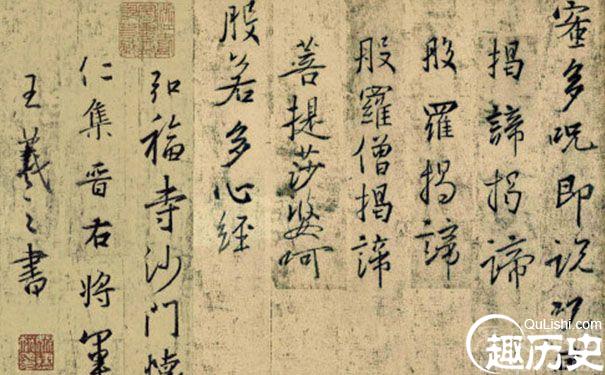 蜜多呪即說
揭諦揭諦
般羅揭諦
般羅僧揭諦
菩提莎婆呵
般若多心經
弘福寺沙門懷
仁集晉右將軍
王羲之書
QuLishi.com
趣历史